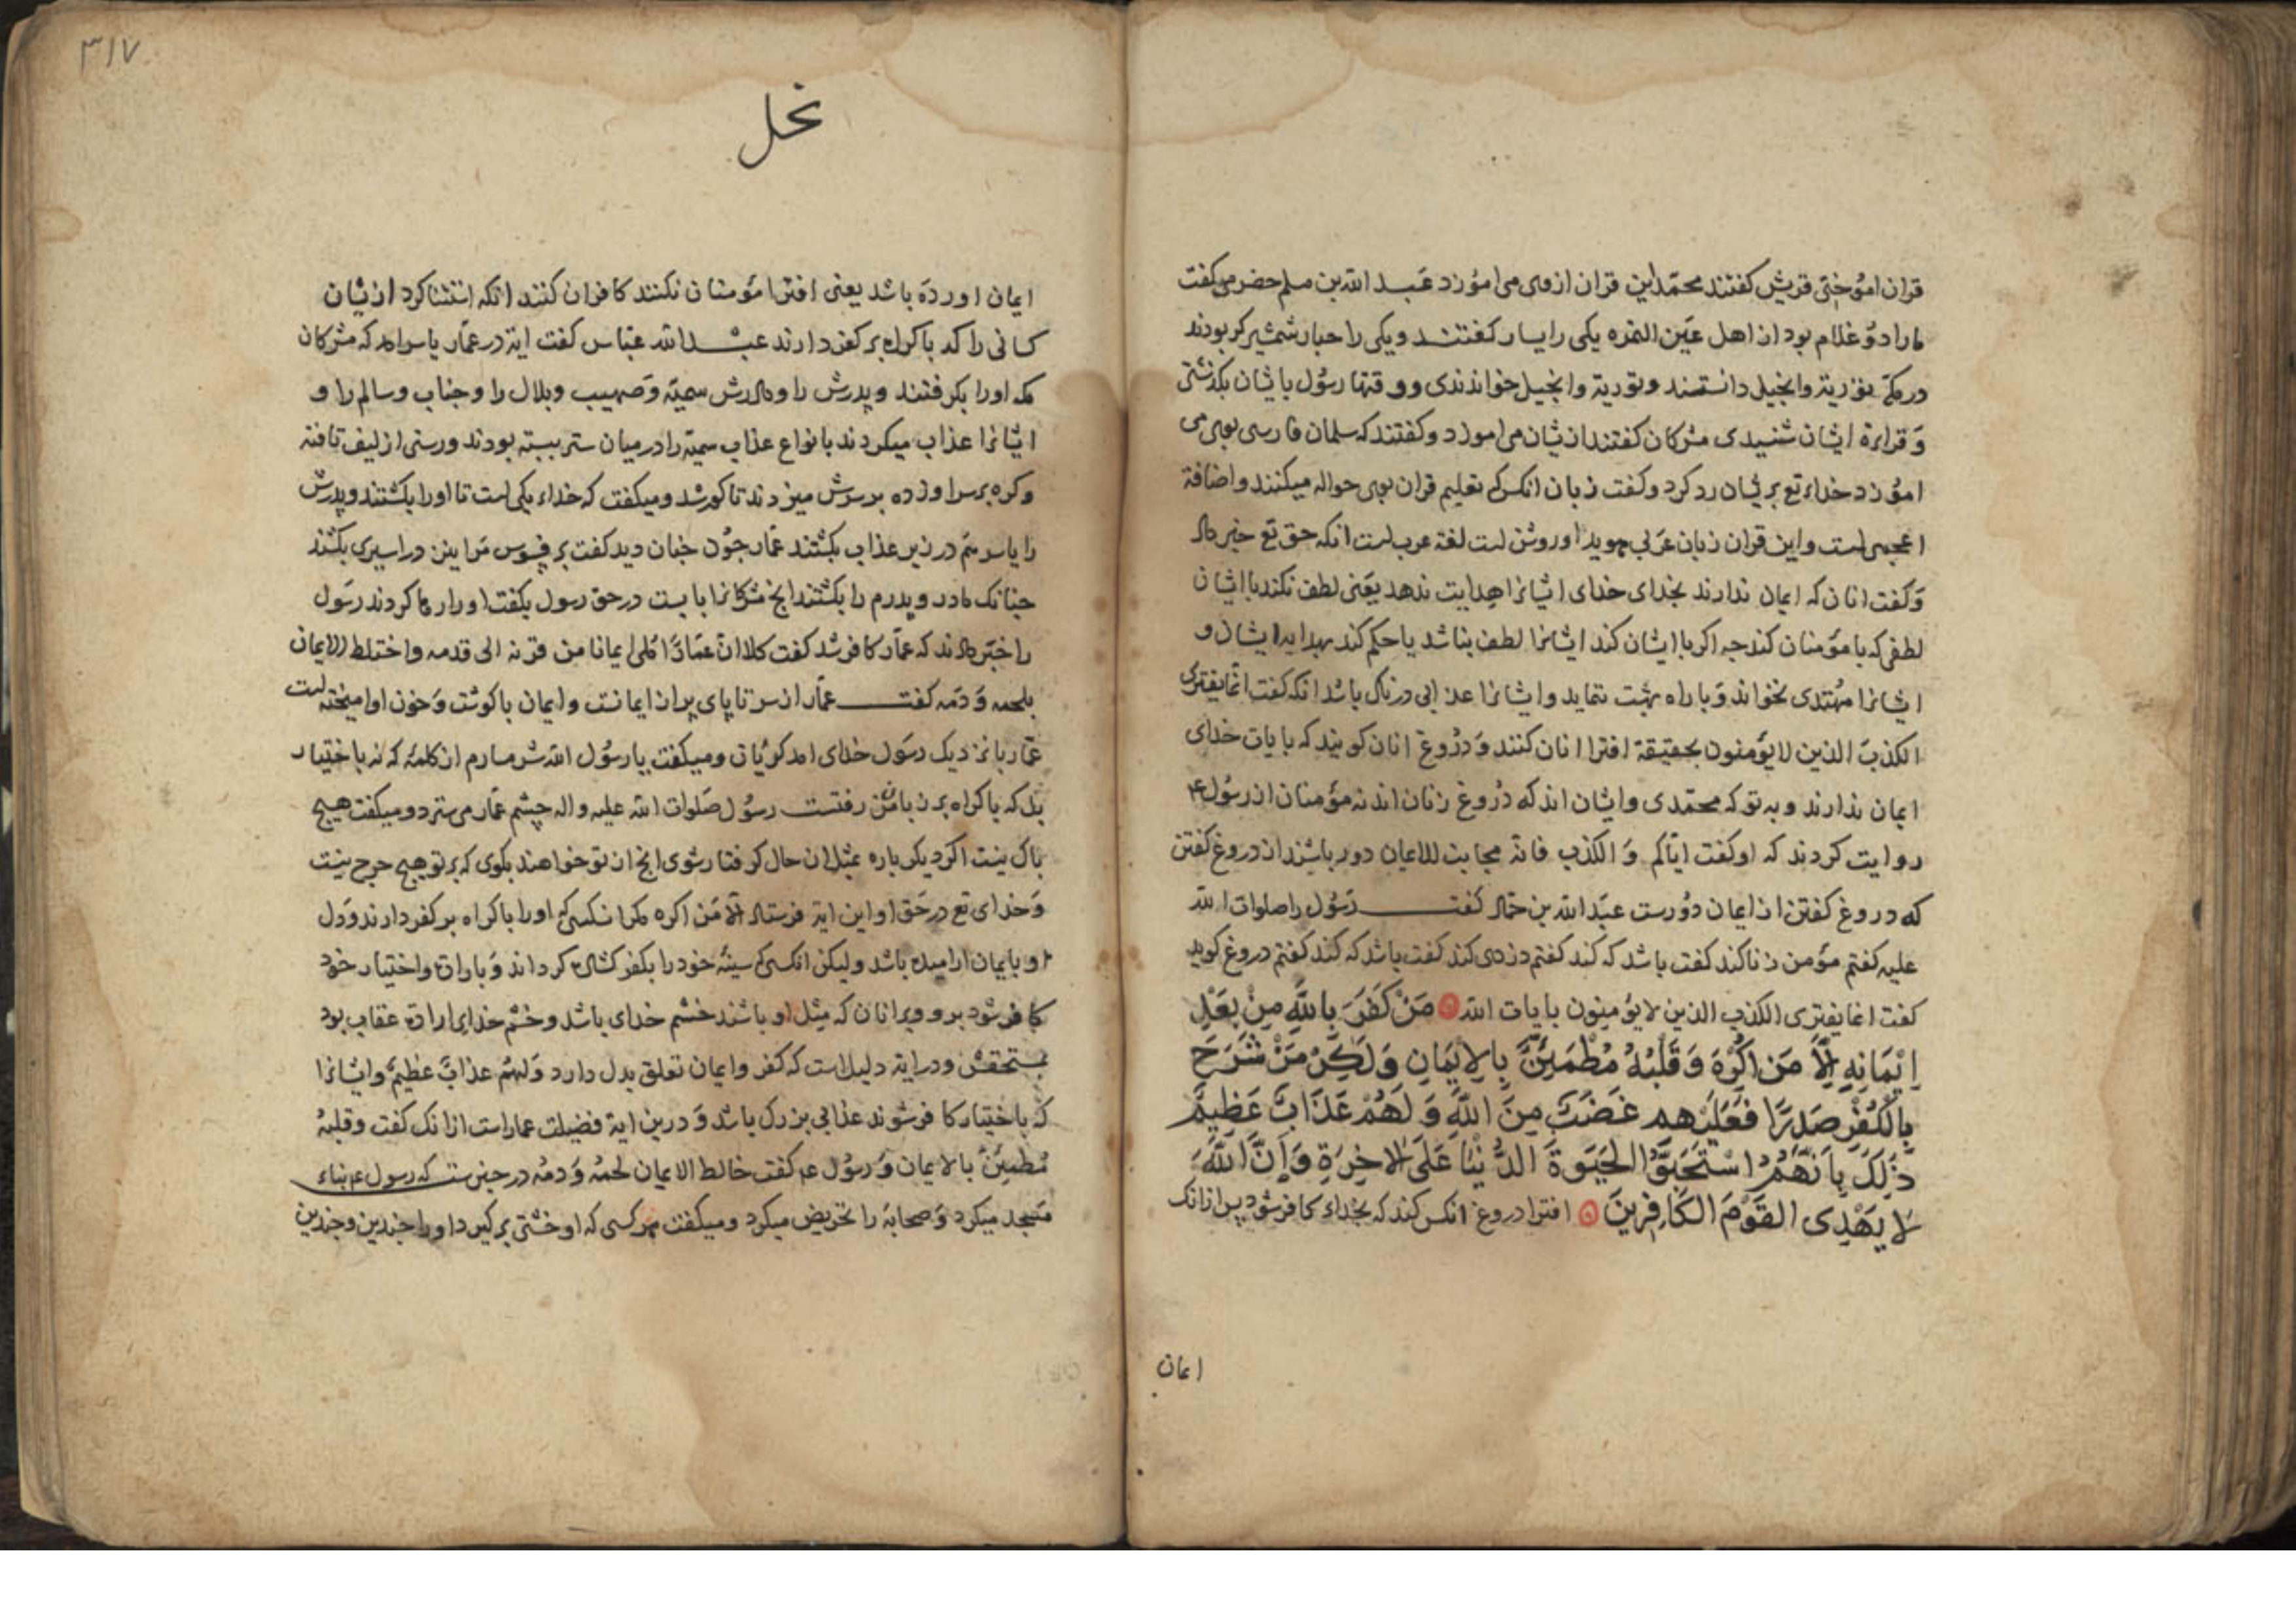 قران اموختی قریش کفتند محمد این قران ازوی می اموزد عبد الله بن مسلم حضرمی کفت
مارا دو غلام بود از اهل عین التمره یکی را یسار کفتند و یکی را حبار شمشیر کر بودند
در مکه توریة وانجیل دانستند وتوریة وانجیل خواندندی و وقتها رسول بایشان بکذشتی
وقراءة ایشان شنیدی مشرکان کفتند ازیشان می اموزد وکفتند که سلمان فارسی بوی می
اموزد خداء تع بریشان رد کرد وکفت زبان انکس که تعلیم قران بوی حواله میکنند واضافة
اعجمی است واین قران زبان عربی هویدا وروشن است لغة عرب است انکه حق تع خبر داد
وکفت انان که ایمان ندارند بخدای خدای ایشانرا هدایت ندهد یعنی لطف نکند با ایشان
لطفی که با مؤمنان کند جه اکر با ایشان کند ایشانرا لطف نباشد یا حکم کند بهدایه ایشان و
ایشانرا مهتدی نخواند وبا راه بهشت ننماید وایشانرا عذابی دردناک باشد انکه کفت انما یفتری
الکذب الذین لا یؤمنون بحقیقة افترا انان کنند ودروغ انان کویند که بایات خدای
ایمان ندارند و به تو که محمدی وایشان اند که دروغ زنان اند نه مؤمنان از رسول ع
روایت کردند که او کفت ایاکم والکذب فانه مجانب للایمان دور باشید از دروغ کفتن
که دروغ کفتن از ایمان دورست عبد الله بن کفت رسول را صلوات الله
علیه کفتم مؤمن زنا کند کفت باشد که کند کفتم دزدی کند کفت باشد که کند کفتم دروغ کوید
کفت انما یفتری الکذب الذین لا یؤمنون بایات الله مَنْ کَفَرَ بِاللّهِ مِنْ بَعْدِ
اِیمَانِهِ اِلَّا مَنْ اُکْرِهَ وَقَلْبُهُ مُطْمَئِنٌّ بِالْاِیمَانِ وَلَکِنْ مَنْ شَرَحَ
بِالْکُفْرِ صَدْرًا فَعَلَیْهِم غَضَبٌ مِنَ اللّهِ وَلَهُمْ عَذَابٌ عَظِیمٌ
ذَلِکَ بِاَنَّهُمُ اسْتَحَبُّوا الْحَیَوةَ الدُّنْیَا عَلَی الْاخِرَةِ وَاَنَّ اللّهَ
لَا یَهْدِی الْقَوْمَ الْکَافِرِینَ افترا دروغ انکس کند که بخداء کافر شود پس ازانک
ایمان
۳۱۷
نحل
ایمان اورده باشد یعنی افترا مؤمنان نکنند کافران کنند انکه استثنا کرد ازیشان
کسانی را که باکراه بر کفر دارند عبد الله عباس کفت ایة در عمار یاسر امد که مشرکان
مکه اورا بکرفتند وپدرش را ومادرش سمیه وصهیب وبلال را وجناب وسالم را و
ایشانرا عذاب میکردند بانواع عذاب سمیه را درمیان ستر ببسته بودند ورسنی ازلیف تافته
وکره برسر او زده بر سرش میزدند تا کور شد ومیکفت که خداء یکی است تا اورا بکشتند وپدرش
را یاسر هم در زیر عذاب بکشتند عمار جون جنان دید کفت بر مرا نیز در اسیری بکشند
جنانک مادر وپدرم را بکشتند انج مشرکانرا بایست در حق رسول بکفت اورا رها کردند رسول
را خبر دادند که عمار کافر شد کفت کلا ان عمارا ملی ایمانا من قرنه الی قدمه واختلط الایمان
بلحمه ودمه کفت عمار از سر تا پای پر از ایمانست وایمان باکوشت وخون او امیخته است
عمار بانزدیک رسول خدای امد کریان ومیکفت یا رسول الله شرمسارم از کلمه که نه باختیار
بل که باکراه بر زبانم رفتست رسول صلوات الله علیه واله چشم عمار می سترد ومیکفت هیچ
باک نیست اکر دیکر باره بمثل ان حال کرفتار شوی انج از تو خواهند بکوی که بر تو هیچ حرج نیست
وخدای تع در حق او این ایة فرستاد الا من اکره مکر انکسی که اورا باکراه بر کفر دارند ودل
او بایمان ارامیده باشد ولیکن انکسی که سینه خود را بکفر کشاده کرداند وباراده واختیار خود
کافر شود برو وبرانان که مثل او باشند خشم خدای باشد وخشم خدای ارادة عقاب بود
بمستحقش ودر ایة دلیل است که کفر وایمان تعلق بدل دارد ولهم عذاب عظیم وایشانرا
که باختیار کافر شوند عذابی بزرک باشد ودرین ایة فضیلت عمار است ازانک کفت وقلبه
مطمئن بالایمان ورسول ع کفت خالط الایمان لحمه ودمه در خبرست که رسول ع بناء
مسجد میکرد وصحابه را تحریض میکرد ومیکفت هر کسی که او خشتی بر کیرد اورا چندین وچندین